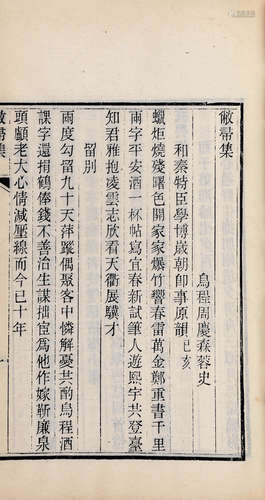 敝帚集
烏程周慶森蓉史
和秦特臣學博歲朝即事原韻己亥
蠟炬燒殘曙色開家家爆竹響春雷萬金鄭重書千里
兩字平安酒一杯帖寫宜春新試筆人遊熙宇共登臺
知君雅抱凌雲志欣看天衢展驥才
留別
兩度勾留九十天萍蹤偶聚客中憐解憂共酌烏程酒
課字還捐鶴俸錢不善治生謀拙宦為他作嫁靳廉泉
頭顱老大心情減壓線而今已十年
敝帚集